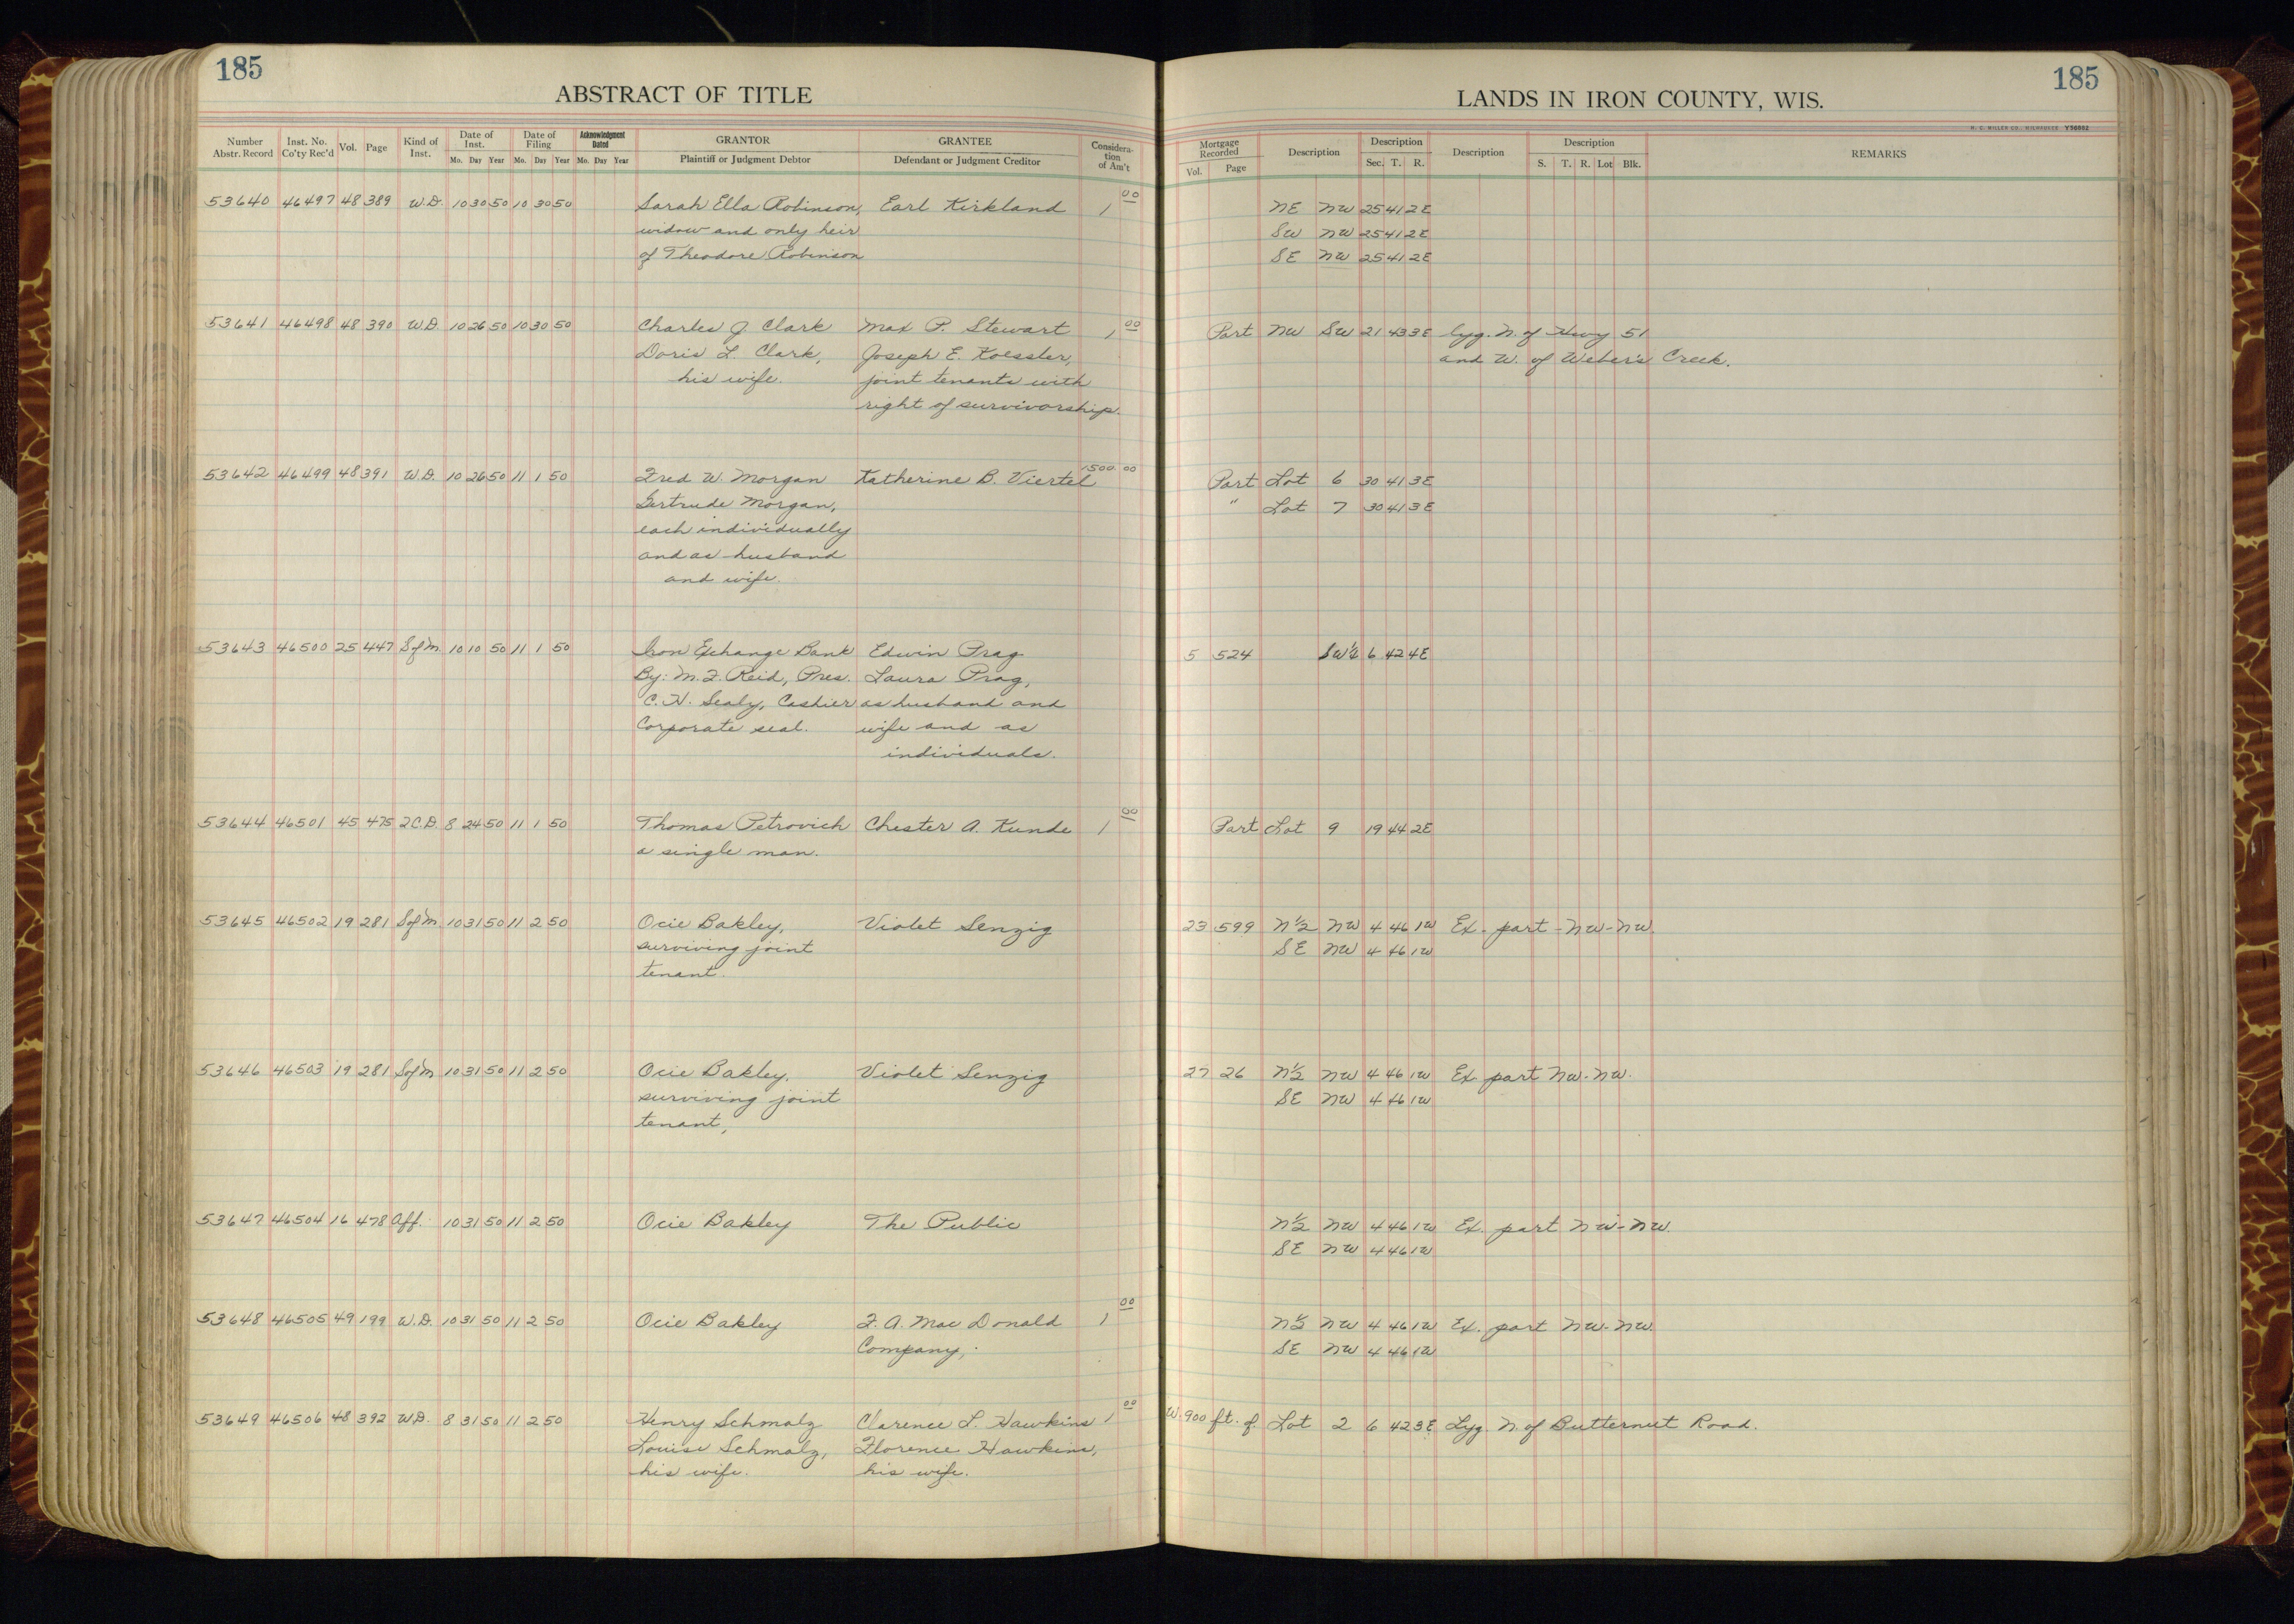 185
ABSTRACT OF TITLE
Number Abstr. Record Inst. No. Co'ty Rec'd Vol. Page Kind of Inst. Date of Inst. Mo. Day Year Date of Filing Mo. Day Year Acknowledgment Dated Mo. Day Year GRANTOR Plaintiff or Judgment Debtor GRANTEE Defendant or Judgment Creditor Considera-tion of Am't
53640 46497 48 389 W.D. 10 30 50 10 30 50 Sarah Ella Robinson, Earl Kirkland 1 00
widow and only heir
of Theodore Robinson
53641 46498 48 390 W.D. 10 26 50 10 30 50 Charles J. Clark Max P. Stewart 1 00
Doris L. Clark, Joseph E. Koessler,
his wife. joint tenants with
right of survivorship.
53642 46499 48 391 W.D. 10 26 50 11 1 50 Fred W. Morgan Katherine B. Viertel 1500 00
Gertrude Morgan,
each individually
and as husband
and wife.
53643 46500 25 447 S of M 10 10 50 11 1 50 Iron Exchange Bank Edwin Prag
By: M.F. Reid, Pres. Laura Prag,
C.H. Sealy, Cashier as husband and
Corporate seal. wife and as
individuals.
53644 46501 45 475 2C.D. 8 24 50 11 1 50 Thomas Petrovich Chester A. Kunde 1 00
a single man.
53645 46502 19 281 S of M 10 31 50 11 2 50 Ocie Bakley, Violet Senzig
surviving joint
tenant.
53646 46503 19 281 S of M 10 31 50 11 2 50 Ocie Bakley, Violet Senzig
surviving joint
tenant,
53647 46504 16 478 Aff. 10 31 50 11 2 50 Ocie Bakley The Public
53648 46505 49 199 W.D. 10 31 50 11 2 50 Ocie Bakley F. A. Mac Donald 1 00
Company,
53649 46506 48 392 W.D. 8 31 50 11 2 50 Henry Schmalz Clarence L. Hawkins 1 00
Louise Schmalz, Florence Hawkins,
his wife. his wife.
185
LANDS IN IRON COUNTY, WIS.
H. C. MILLER CO., MILWAUKEE Y56662
Mortgage Recorded Vol. Page Description Description Sec. T. R. Description Description S. T. R. Lot Blk. REMARKS
NE NW 25 41 2E
SW NW 25 41 2E
SE NW 25 41 2E
Part NW SW 21 43 3E lyg. N. of Hwy 51
and W. of Weber's Creek.
Part Lot 6 30 41 3E
" Lot 7 30 41 3E
5 524 SW¼ 6 42 4E
Part Lot 9 19 44 2E
23 599 N½ NW 4 46 1W Ex. part - NW-NW.
SE NW 4 46 1W
27 26 N½ NW 4 46 1W Ex. part NW-NW.
SE NW 4 46 1W
N½ NW 4 46 1W Ex. part NW-NW.
SE NW 4 46 1W
N½ NW 4 46 1W Ex. part NW-NW.
SE NW 4 46 1W
W. 900 ft. of Lot 2 6 42 3E Lyg. N. of Butternut Road.